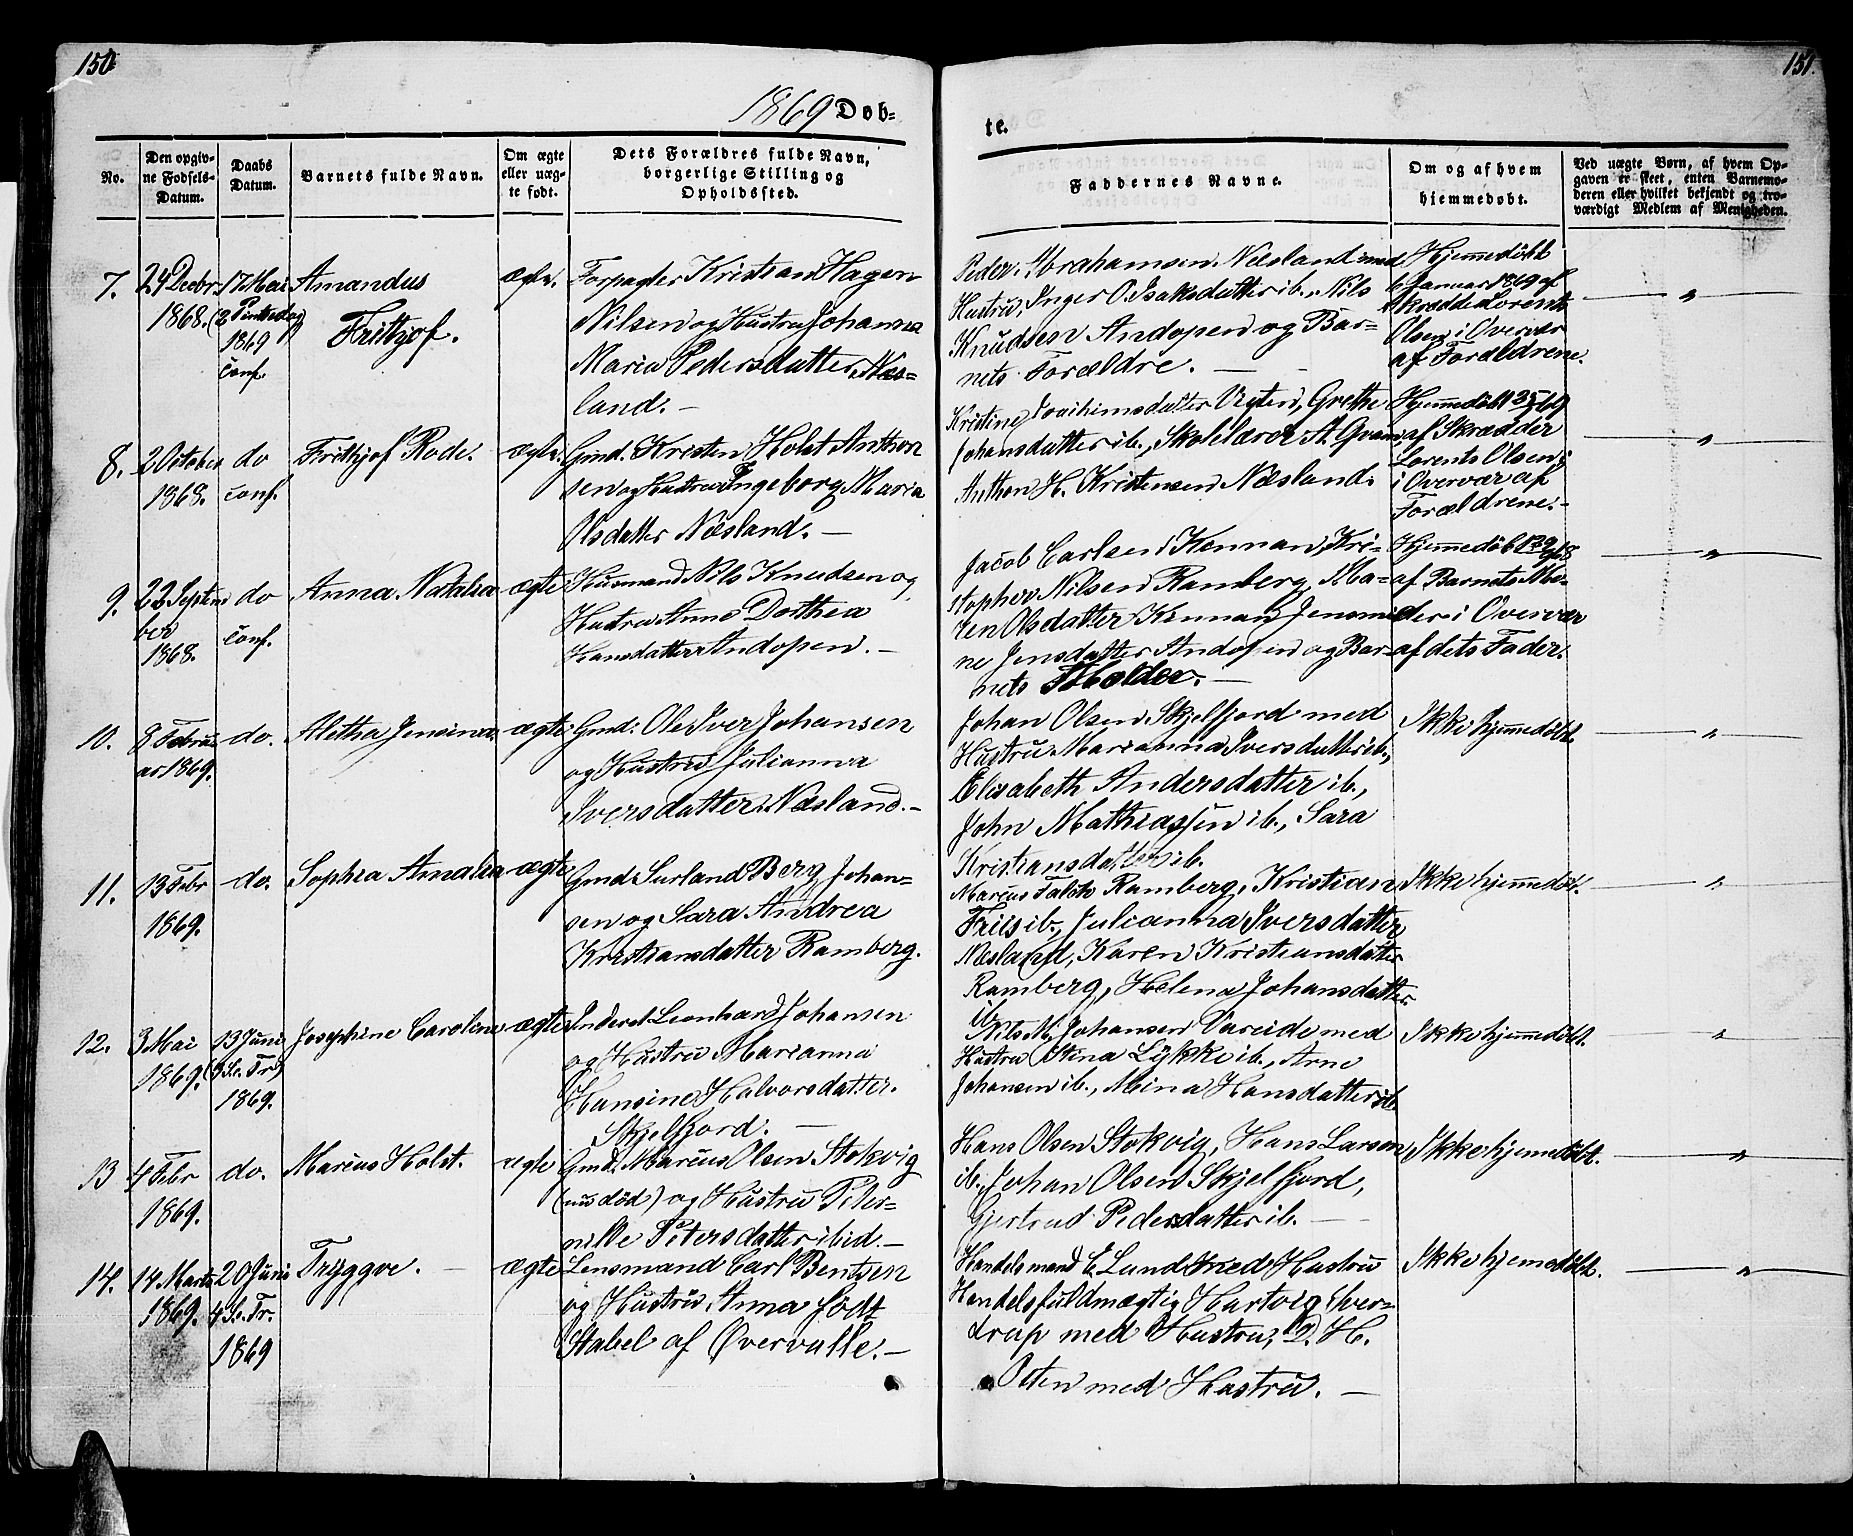 150
151.
1869 Døb-
te.
No.
Den opgiv-
ne Fødsels-
Datum.
Daabs
Datum.
Barnets fulde Navn.
Om ægte
eller uæg-
te født.
Dets Forældres fulde Navn,
borgerlige Stilling og
Opholdssted.
Faddernes Navne.
Om og af hvem
hjemmedøbt.
Ved uægte Børn, af hvem Op-
gaven er skeet, enten Barnemo-
deren eller hvilket bekjendt og tro-
værdigt Medlem af Menigheden.
7.
24 Decbr
1868.
17 Mai
(2 Pintsedag)
1869
conf.
Amandus
Frithjof.
ægte.
Forpagter Kristian Hagen
Nilsen og Hustru Johanna
Maria Pedersdatter Næs-
land. -
Peder Abrahamsen Næsland med
Hustru, Inger O. Isaksdatter ib., Nils
Knudsen Andopen og Bar-
nets Forældre. -
Hjemmedöbt
6 Januar 1869 af
Skrædder Lorents
Olsen i Overvær
af Forældrene.
"
8.
2 October
1868.
do
conf.
Frithjof Rode.
ægte.
Gmd. Kristen Holst Anthon
sen og Hustru Ingeborg Maria
Olsdatter Næsland. -
Kristine Joachimsdatter Vigten, Grethe
Johansdatter ib., Skolelærer A. Gvam,
Anthon H. Kristensen Næsland.
Hjemmedöbt
af Skrædder
Lorents Olsen
i Overvær af
Forældrene. -
"
9.
22 Septem
ber
1868.
do
conf.
Anna Natalia
ægte
Husmand Nils Knudsen og
Hustru Anne Dorthea
Hansdatter Andopen. -
Jacob Carlsen Kennan, Kri-
stopher Nilsen Ramberg, Ma-
ren Olsdatter Kennan, Jensmi-
ne Jensdatter Andopen og Bar-
nets Forælder. -
Hjemmedöbt
af Barnets Mo-
der i Overvær
af dets Fader.
"
10.
8 Febru
ar 1869.
do.
Aletha Jensina.
ægte
Gmd. Ole Iver Johansen
og Hustru Julianna
Iversdatter Næsland. -
Johan Olsen Skjelfjord med
Hustru Marianna Iversdatter ib.,
Elisabeth Andersdatter ib.,
John Mathiassen ib., Sara
Kristiansdatter ib.
Ikke hjemmedöbt.
"
11.
13 Febr
1869.
do.
Sophia Amalia
ægte
Gmd. Surland Berg Johan-
sen og Sara Andrea
Kristiansdatter Ramberg.
Marcus Falch Ramberg, Kristian
Friis ib., Julianna Iversdatter
Næsland, Karen Kristiansdatter
Ramberg, Helena Johansdatter
ib.
Ikke hjemmedöbt.
"
12.
3 Mai
1869.
13 Juni
(3 S. e. Tr.)
1869.
Josephine Caroline
ægte
Inderst Leonhard Johansen
og Hustru Marianna
Hansine Halvorsdatter.
Skjelfjord. -
Nils M. Johansen Vareide med
Hustru Stina Lykke ib., Arne
Johansen ib., Mina Hansdatter ib.
Ikke hjemmedöbt.
"
13
4 Febr
1869.
do.
Marius Holst.
ægte
Gmd. Marcus Olsen Stokvig
(nu död) og Hustru Peter-
nille Petersdatter ibid. -
Hans Olsen Stokvig, Hans Larsen
ib., Johan Olsen Skjelfjord,
Gjertrud Pedersdatter ib.
Ikke hjemmedöbt.
"
14.
14 Marts
1869.
20 Juni
4 S. e. Tr.
1869
Tryggve. -
ægte
Lensmand Carl Bentzen
og Hustru Anna född
Stabel af Övervalle. -
Handelsmand E. Lund med Hustru
Handelsfuldmægtig Hartvig Sver-
drup med Hustru, D. H.
Osten med Hustru. -
Ikke hjemmedöbt.
"